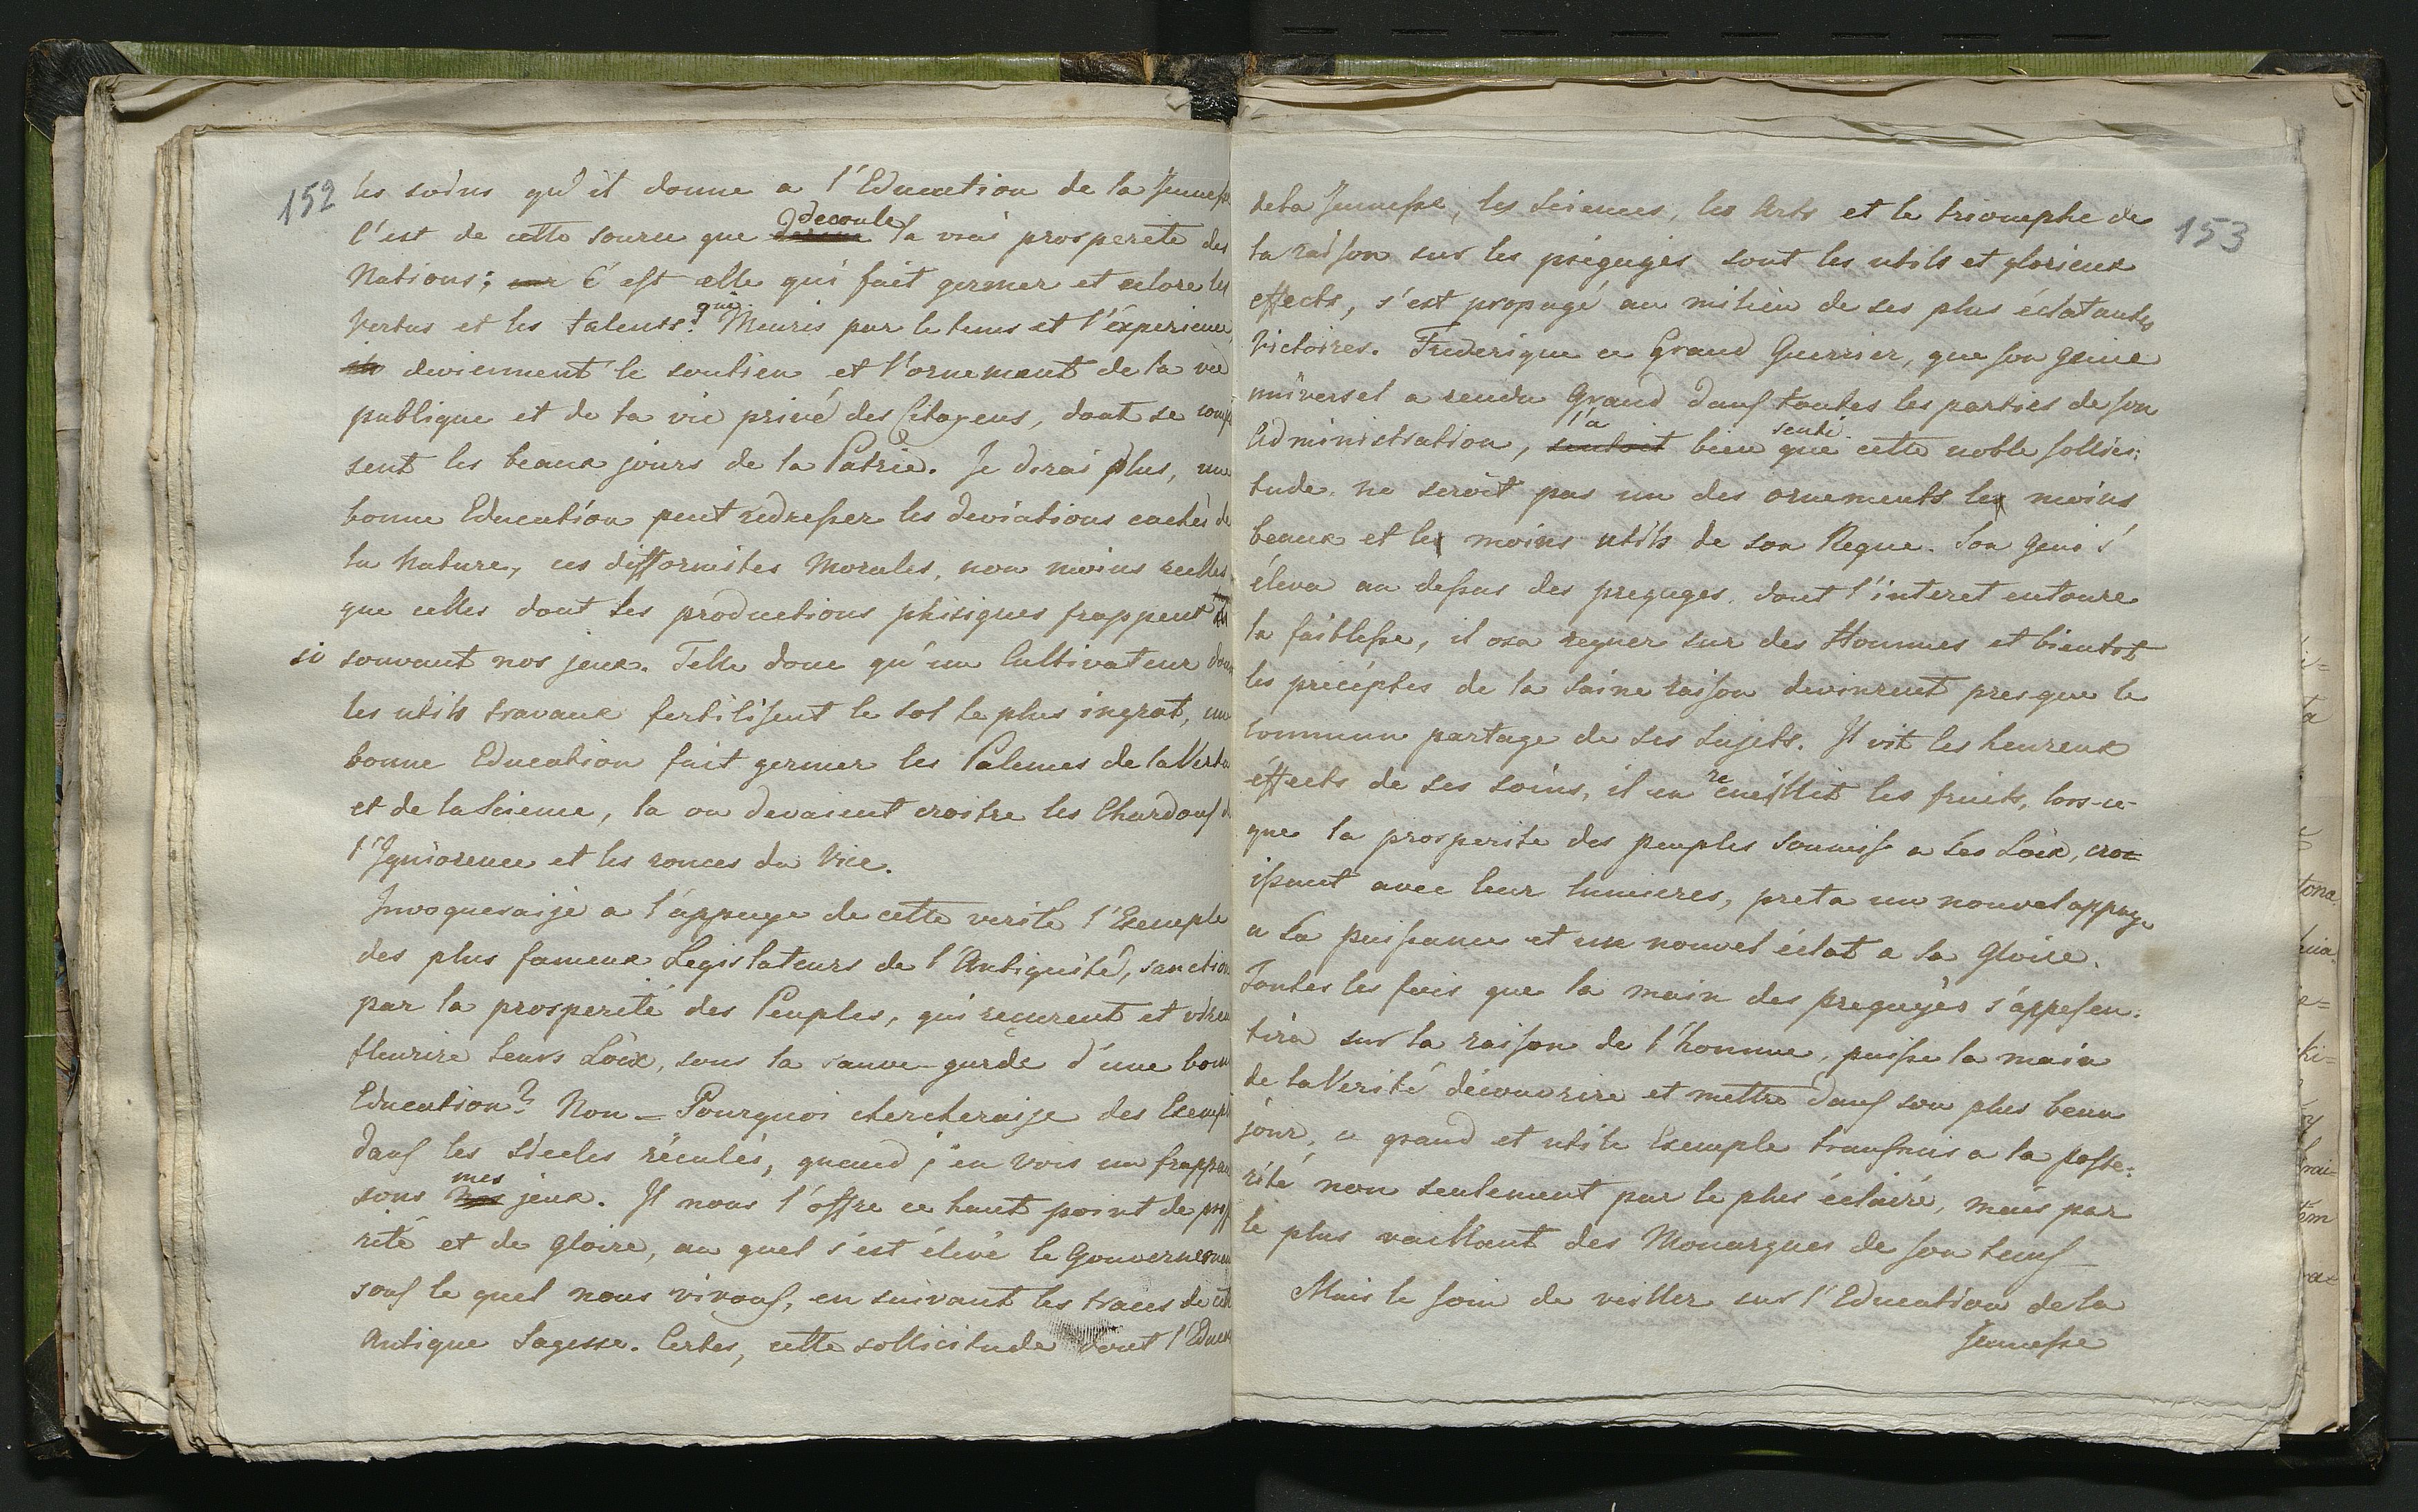 152
les soins qu'il donne a l'Education de la Jeunesse
C'est de cette source que decoule la vrai prosperité des
Nations; car C'est elle qui fait germer et eclore les
Vertus et les talents? qui Meuris par le tems et l'éxperience,
ils deviennent le soutien et l'ornement de la vie
publique et de la vie privé des Citoyens, dont se comp
sent les beaux jours de la Patrie. Je dirai plus, une
bonne Education peut redresser les deviations cachés de
la Nature, ces difformites Morales, non moins reelles
que celles dont les productions phisiques frappent
si souvant nos jeux. Telle donc qu'un Cultivateur dont
les utils travaux fertilisent le sol le plus ingrat, une
bonne Education fait germer les Palmes de la Vertu
et de la Science, la ou devaient croitre les Chardons de
l'Igniorence et les ronces du Vice.
Invoqueraije a l'appuye de cette verité l'Exemple
des plus fameux Legislateurs de l'Antiquité, sanction
par la prosperité des Peuples, qui reçurent et virent
fleurire leurs Loix, sous la sauve-garde d'une bonne
Education? Non – Pourquoi chercheraije des Exempl
dans les siecles réculés, quand j'en vois un frappant
sous nos mes jeux. Il nous l'offre ce haut point de prosp
rité et de gloire, au quel s'est élevé le Gouvernement
sous le quel nous vivons, en suivant les traces de cette
Antique Sagesse. Certes, cette sollicitude dont l'Educa
153
de la Jeunesse, les sciences, les Arts et le triomphe de
la raison sur les préguges sont les utils et glorieux
effects, s'est propagé au milieu de ses plus éclatantes
Victoires. Frederique ce Grand Guerrier, que son genie
universel a rendu Grand dans toutes les parties de son
Administration, sentoit l'a bien senti que cette noble sollici:
tude, ne seroit pas un des ornements les moins
beaux et les moins utils de son Regne. Son Geni s'
éleva au dessus des preguges, dont l'interet entoure
la faiblesse, il osa regner sur des Hommes et bientot
les précéptes de la saine raison devinrent presque le
commun partage de ses sujets. Il vit les heureux
éffects de ses soins, il en recueillit les fruits, lors-ce-
que la prosperite des peuples soumiss a ses Loix, croi=
ssant avec leur lumieres, preta un nouvel appuye
a sa puissance et un nouvel éclat a sa Gloire.
Toutes les fois que la main des preguges s'appesen:
tira sur la raison de l'homme, puisse la main
de la Verité décourire et mettre dans son plus beau
jour, ce grand et utile Exemple transmis a la poste:
rité non seulement par le plus éclairé, mais par
le plus vaillant des Monarques de son tems –
Mais le soin de veiller sur l'Education de la
Jeunesse